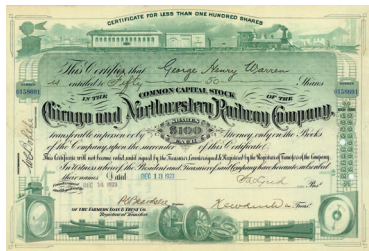 CERTIFICATE FOR LESS THAN ONE HUNDRED SHARES
This Certifies that George Henry Warren
is entitled to Fifty 50 Shares
NUMBER
NUMBER
IN THE COMMON CAPITAL STOCK OF THE
Chicago and Northwestern Railway Company,
SHARES
$100
EACH
transferable in person or by Attorney, only on the Books
of the Company, upon the surrender of this Certificate.
This Certificate will not become valid until signed by the Treasurer, Countersigned & Registered by the Registrar of Transfers of the Company.
In Witness whereof the President and Treasurer of said Company have hereunto subscribed
their names Dated DEC 1903
DEC 14 1903
Prest.
OF THE FARMERS LOAN & TRUST CO.
Registrar of Transfers
Treasr.